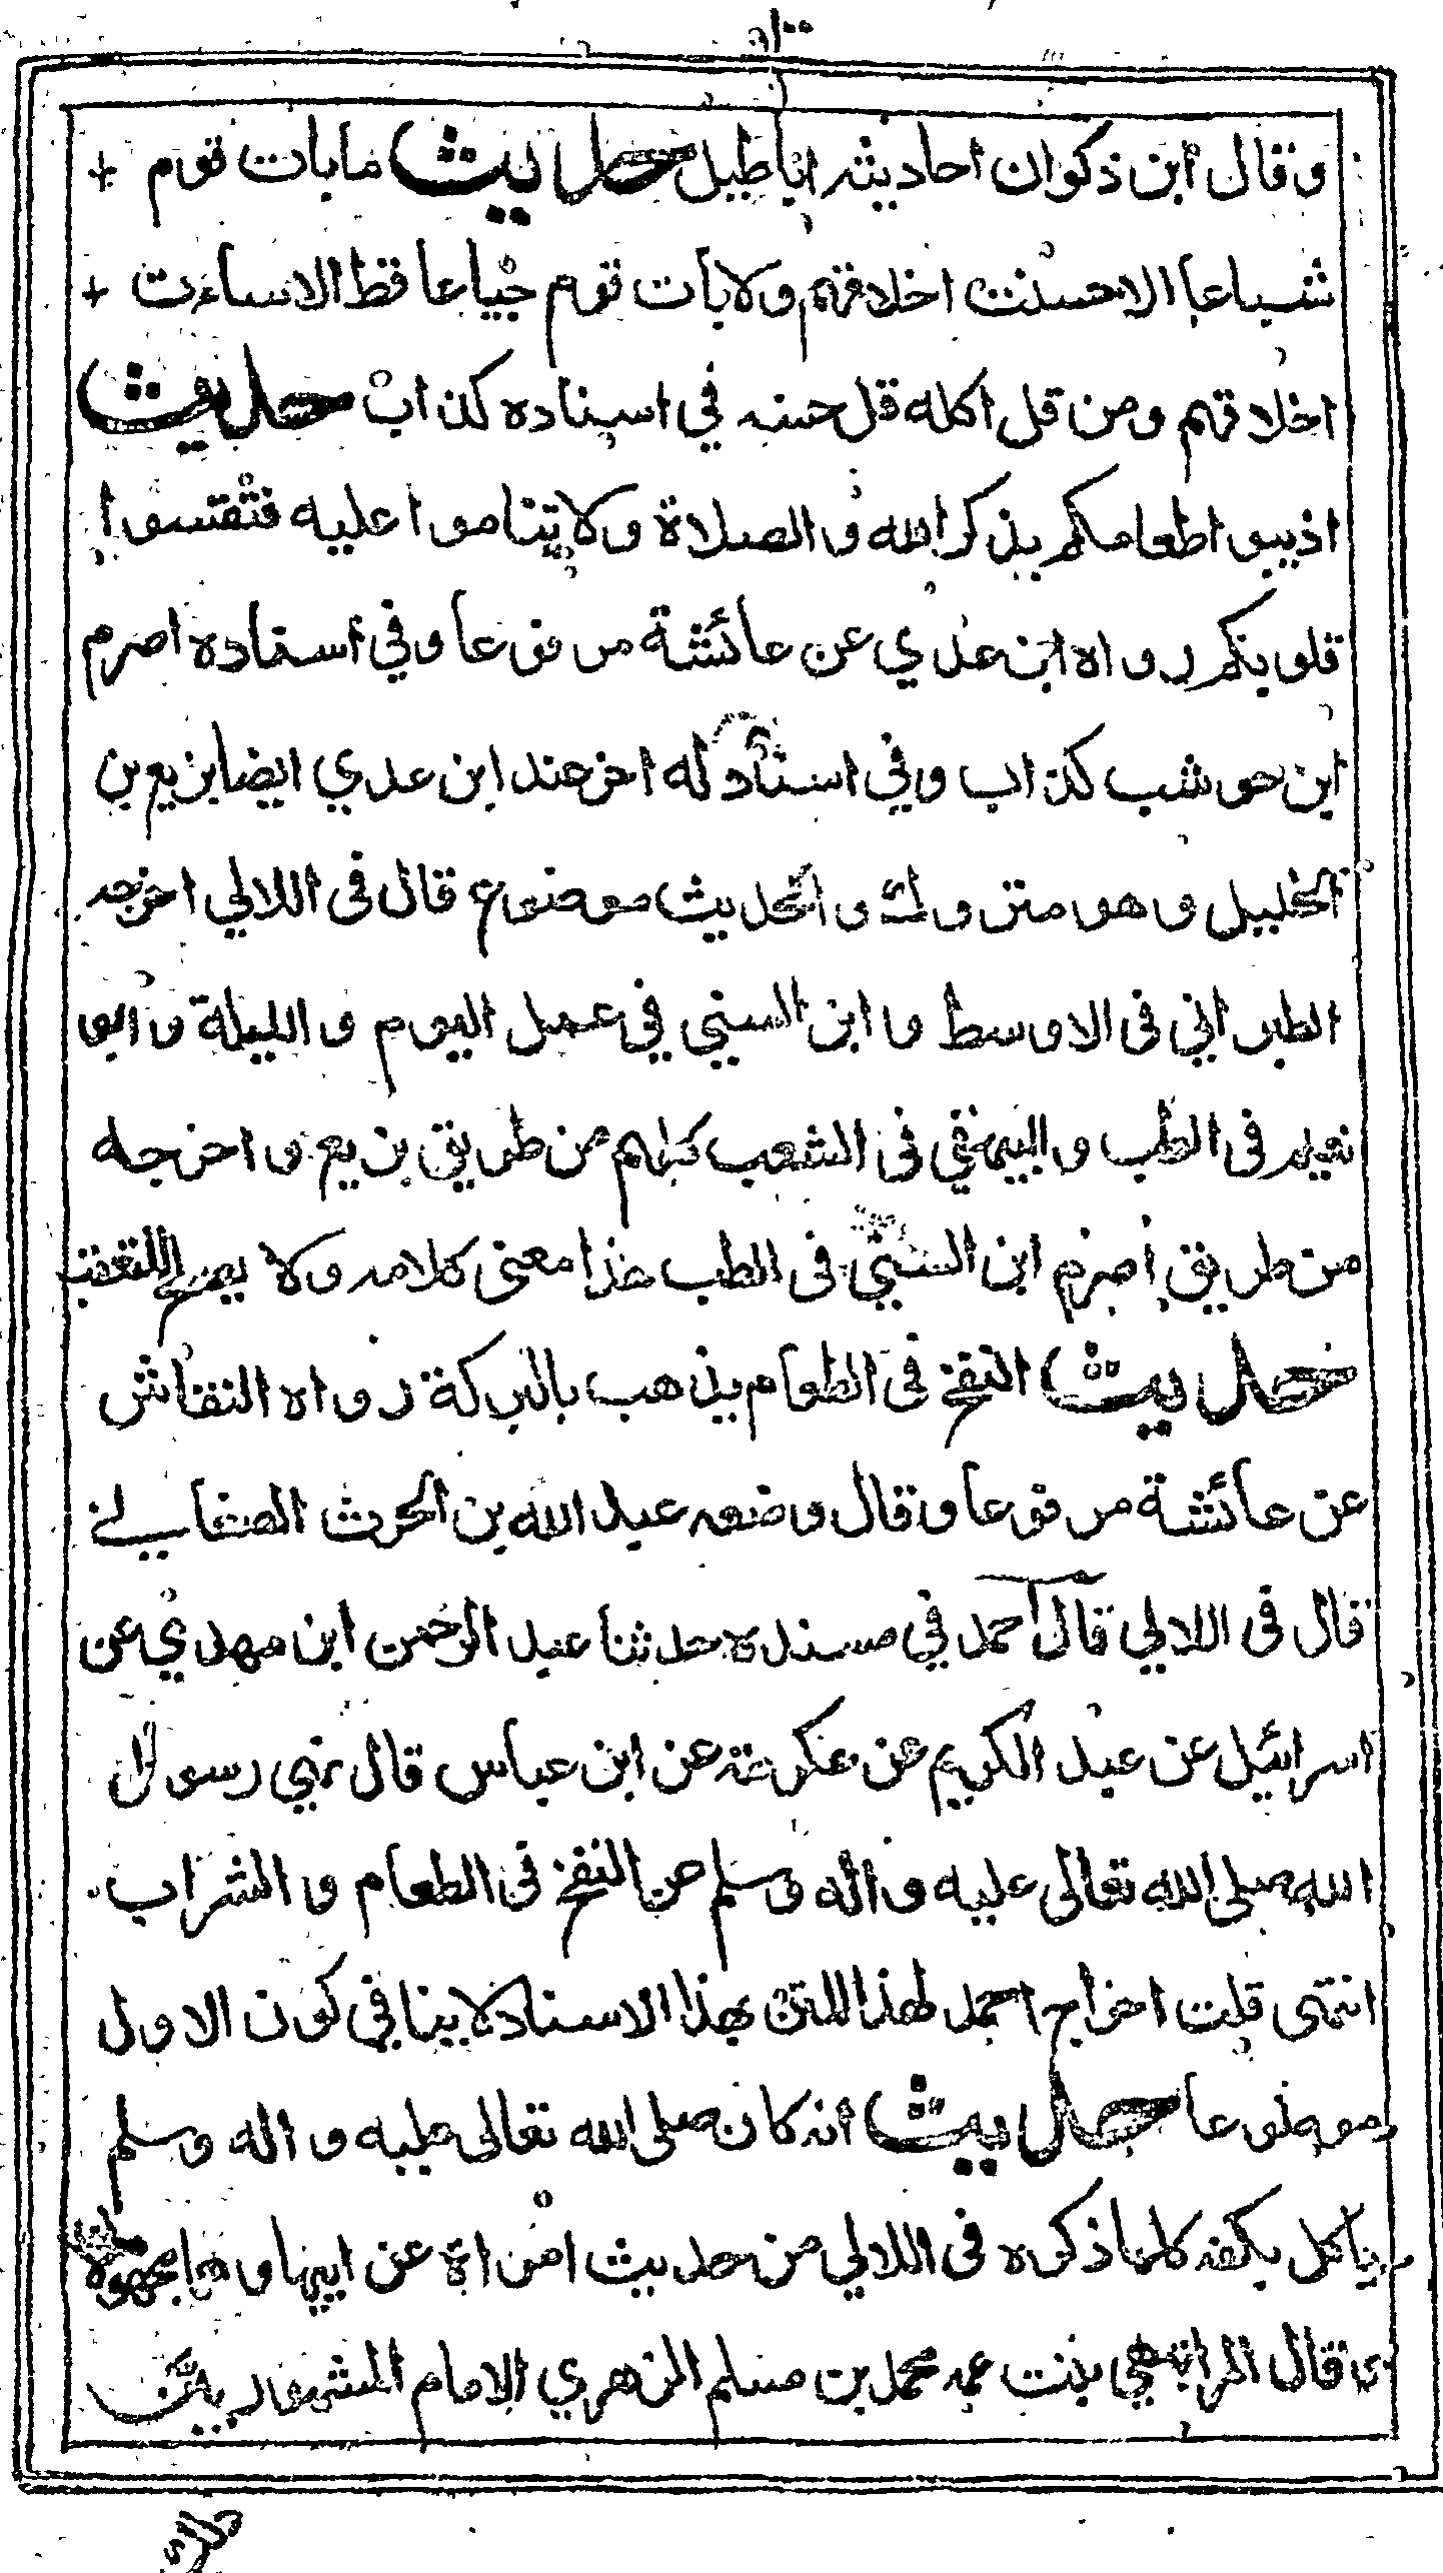 وقال ابن ذكوان احاديثه اباطيل حديث مابات قوم
شباعا الاحسنت اخلاقهم ولابات قوم جياعا قط الاساءت
اخلاقهم ومن قل اكله قل حسنه في اسناده كذاب حديث
اذيبوا طعامكم بذكر الله والصلاة ولا تناموا عليه فتقسوا
قلوبكم رواه ابن عدي عن عائشة مرفوعا وفي اسناده اصرم
ابن حوشب كذاب وفي اسناد له اخرجه ابن عدي ايضا بزيع بن
الخليل وهو متروك والحديث موضوع قال في اللالي اخرجه
الطبراني في الاوسط وابن السني في عمل اليوم والليلة وابو
نعيم في الطب والبيهقي في الشعب كلهم من طريق بزيع واخرجه
من طريق اصرم ابن السني في الطب هذا معنى كلامه ولا يصح التعقب
حديث النفخ في الطعام يذهب بالبركة رواه النقاش
عن عائشة مرفوعا وقال وضعه عبد الله بن الحرث الصنعاني
قال في اللالي قال احمد في مسنده حدثنا عبد الرحمن ابن مهدي عن
اسرائيل عن عبد الكريم عن عكرمة عن ابن عباس قال نهى رسول
الله صلى الله تعالى عليه واله وسلم عن النفخ في الطعام والشراب
انتهى قلت اخراج احمد لهذا المتن بهذا الاسناد لا ينافي كون الاول
موضوعا حديث انه كان صلى الله تعالى عليه واله وسلم
ياكل بكفه كلها ذكره في اللالي من حديث امراة عن ابيها وهما مجهولان
وقال المراة هي بنت عمه محمد بن مسلم الزهري الامام المشهور